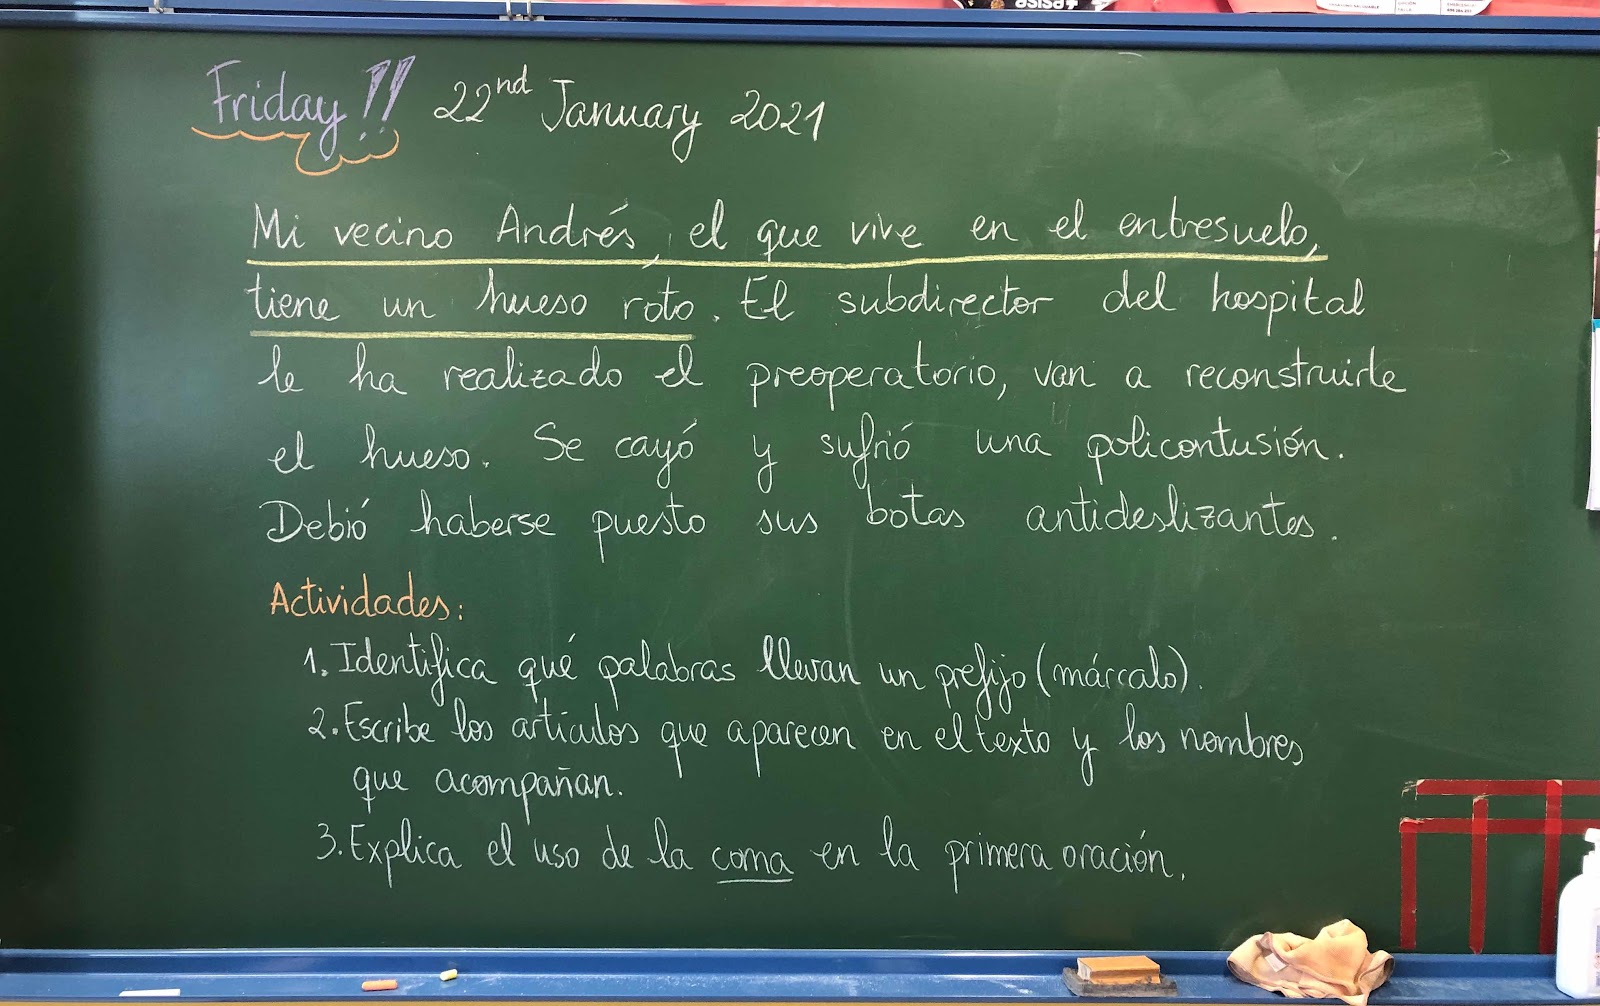 asisa+
Friday!! 22nd January 2021
Mi vecino Andrés, el que vive en el entresuelo,
tiene un hueso roto. El subdirector del hospital
le ha realizado el preoperatorio, van a reconstruirle
el hueso. Se cayó y sufrió una policontusión.
Debió haberse puesto sus botas antideslizantes.
Actividades:
1. Identifica qué palabras llevan un prefijo (márcalo).
2. Escribe los artículos que aparecen en el texto y los nombres
que acompañan.
3. Explica el uso de la coma en la primera oración.